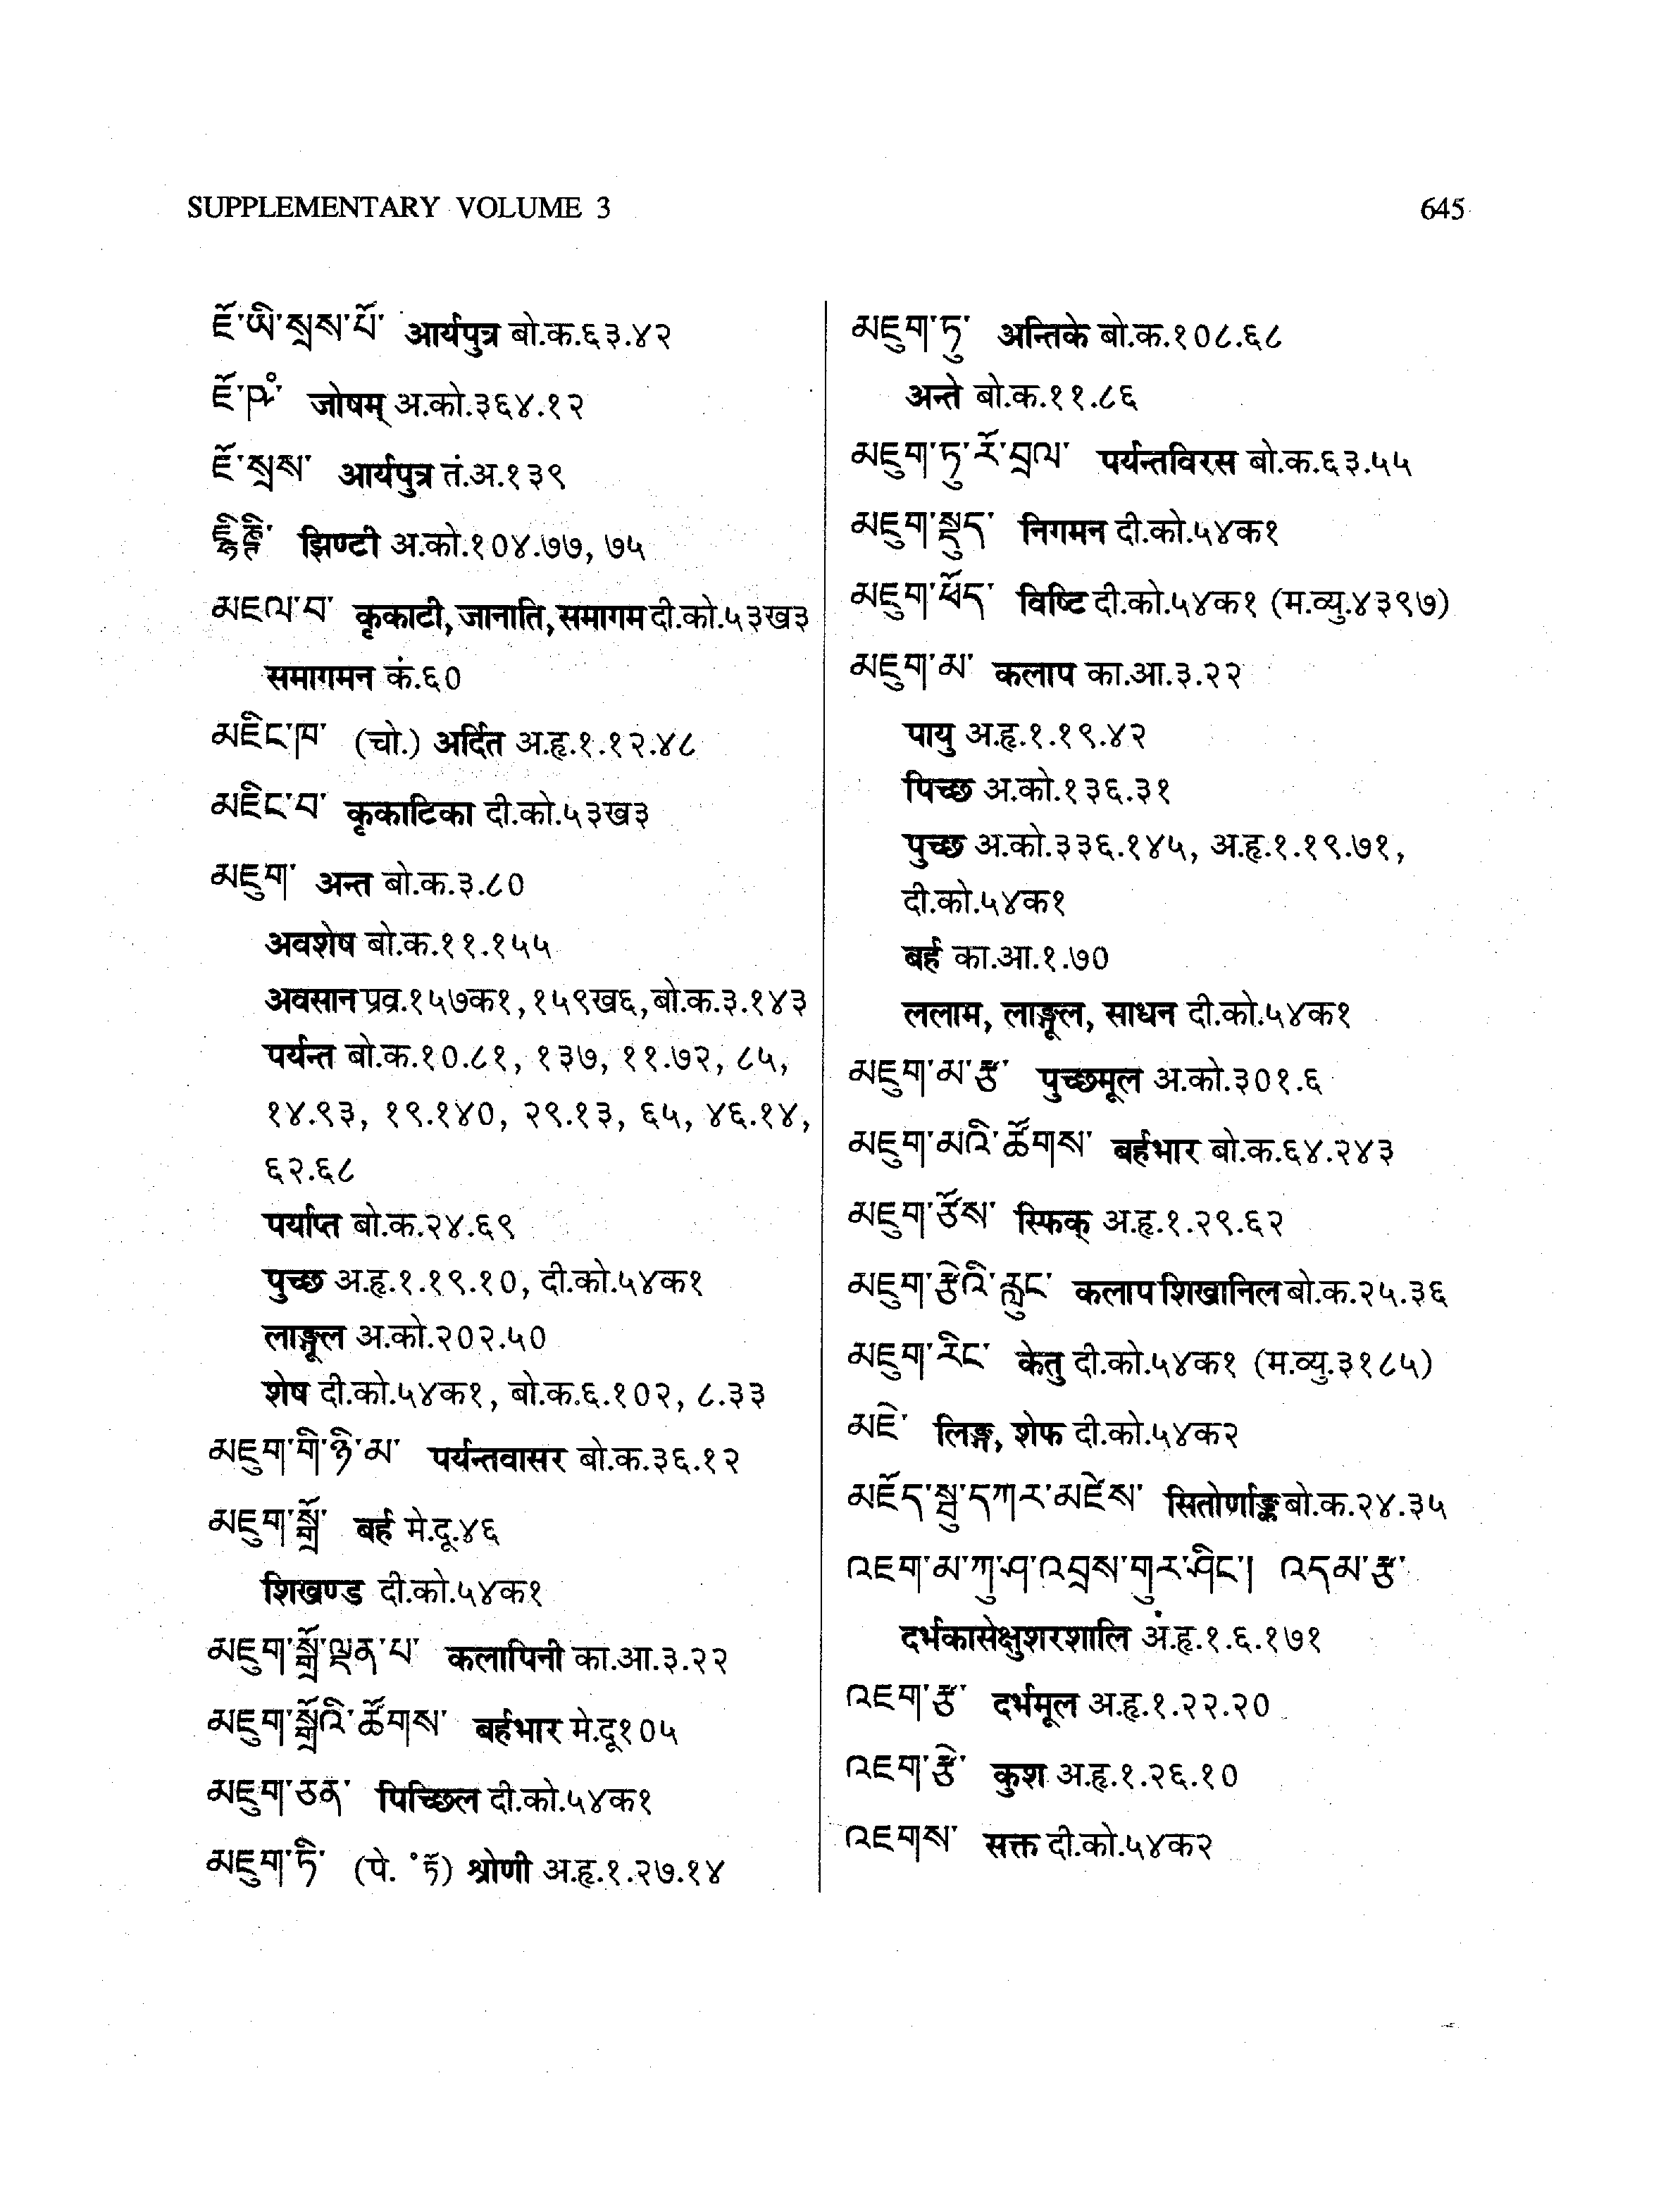 SUPPLEMENTARY VOLUME 3
645
ཇོ་ཡི་སྲས་པོ་ आर्यपुत्र बो.क.६३.४२
ཇོ་ཥཾ་ जोषम् अ.को.३६४.१२
ཇོ་སྲས་ आर्यपुत्र तं.अ.१३९
झिण्टी अ.को.१०४.७७, ७५
མཇལ་བ་ कृकाटी, जानाति, समागम दी.को.५३ख३
समागमन कं.६०
མཇིང་ཁ་ (चो.) अर्दित अ.हृ.१.१२.४८
མཇིང་བ་ कृकाटिका दी.को.५३ख३
མཇུག་ अन्त बो.क.३.८०
अवशेष बो.क.११.१५५
अवसान प्रव्र.१५७क१, १५९ख६, बो.क.३.१४३
पर्यन्त बो.क.१०.८१, १३७, ११.७२, ८५,
१४.९३, १९.१४०, २९.१३, ६५, ४६.१४,
६२.६८
पर्याप्त बो.क.२४.६९
पुच्छ अ.हृ.१.१९.१०, दी.को.५४क१
लाङ्गूल अ.को.२०२.५०
शेष दी.को.५४क१, बो.क.६.१०२, ८.३३
མཇུག་གི་ཉི་མ་ पर्यन्तवासर बो.क.३६.१२
མཇུག་སྒྲོ་ बर्ह मे.दू.४६
शिखण्ड दी.को.५४क१
མཇུག་སྒྲོ་ལྡན་པ་ कलापिनी का.आ.३.२२
མཇུག་སྒྲོའི་ཚོགས་ बर्हभार मे.दू१०५
མཇུག་ཅན་ पिच्छिल दी.को.५४क१
མཇུག་ཏི་ (पे. ॰ ཏོ) श्रोणी अ.हृ.१.२७.१४
མཇུག་ཏུ་ अन्तिके बो.क.१०८.६८
अन्ते बो.क.११.८६
མཇུག་ཏུ་རོ་བྲལ་ पर्यन्तविरस बो.क.६३.५५
མཇུག་སྡུད་ निगमन दी.को.५४क१
མཇུག་ཕོད་ विष्टि दी.को.५४क१ (म.व्यु.४३९७)
མཇུག་མ་ कलाप का.आ.३.२२
पायु अ.हृ.१.१९.४२
पिच्छ अ.को.१३६.३१
पुच्छ अ.को.३३६.१४५, अ.हृ.१.१९.७१,
दी.को.५४क१
बर्ह का.आ.१.७०
ललाम, लाङ्गूल, साधन दी.को.५४क१
མཇུག་མ་རྩ་ पुच्छमूल अ.को.३०१.६
མཇུག་མའི་ཚོགས་ बर्हभार बो.क.६४.२४३
མཇུག་ཙོས་ स्फिक् अ.हृ.१.२९.६२
མཇུག་རྩེའི་རླུང་ कलापशिखानिल बो.क.२५.३६
མཇུག་རིང་ केतु दी.को.५४क१ (म.व्यु.३१८५)
མཇེ་ लिङ्ग, शेफ दी.को.५४क२
མཇོད་སྤུ་དཀར་མཛེས་ सितोर्णाङ्क बो.क.२४.३५
འཇག་མ་ཀུ་ཤ་འབྲས་གུར་ཤིང་། འདམ་རྩ་
दर्भकासेक्षुशरशालि अ.हृ.१.६.१७१
འཇག་རྩ་ दर्भमूल अ.हृ.१.२२.२०
འཇག་རྩེ་ कुश अ.हृ.१.२६.१०
འཇགས་ सक्त दी.को.५४क२